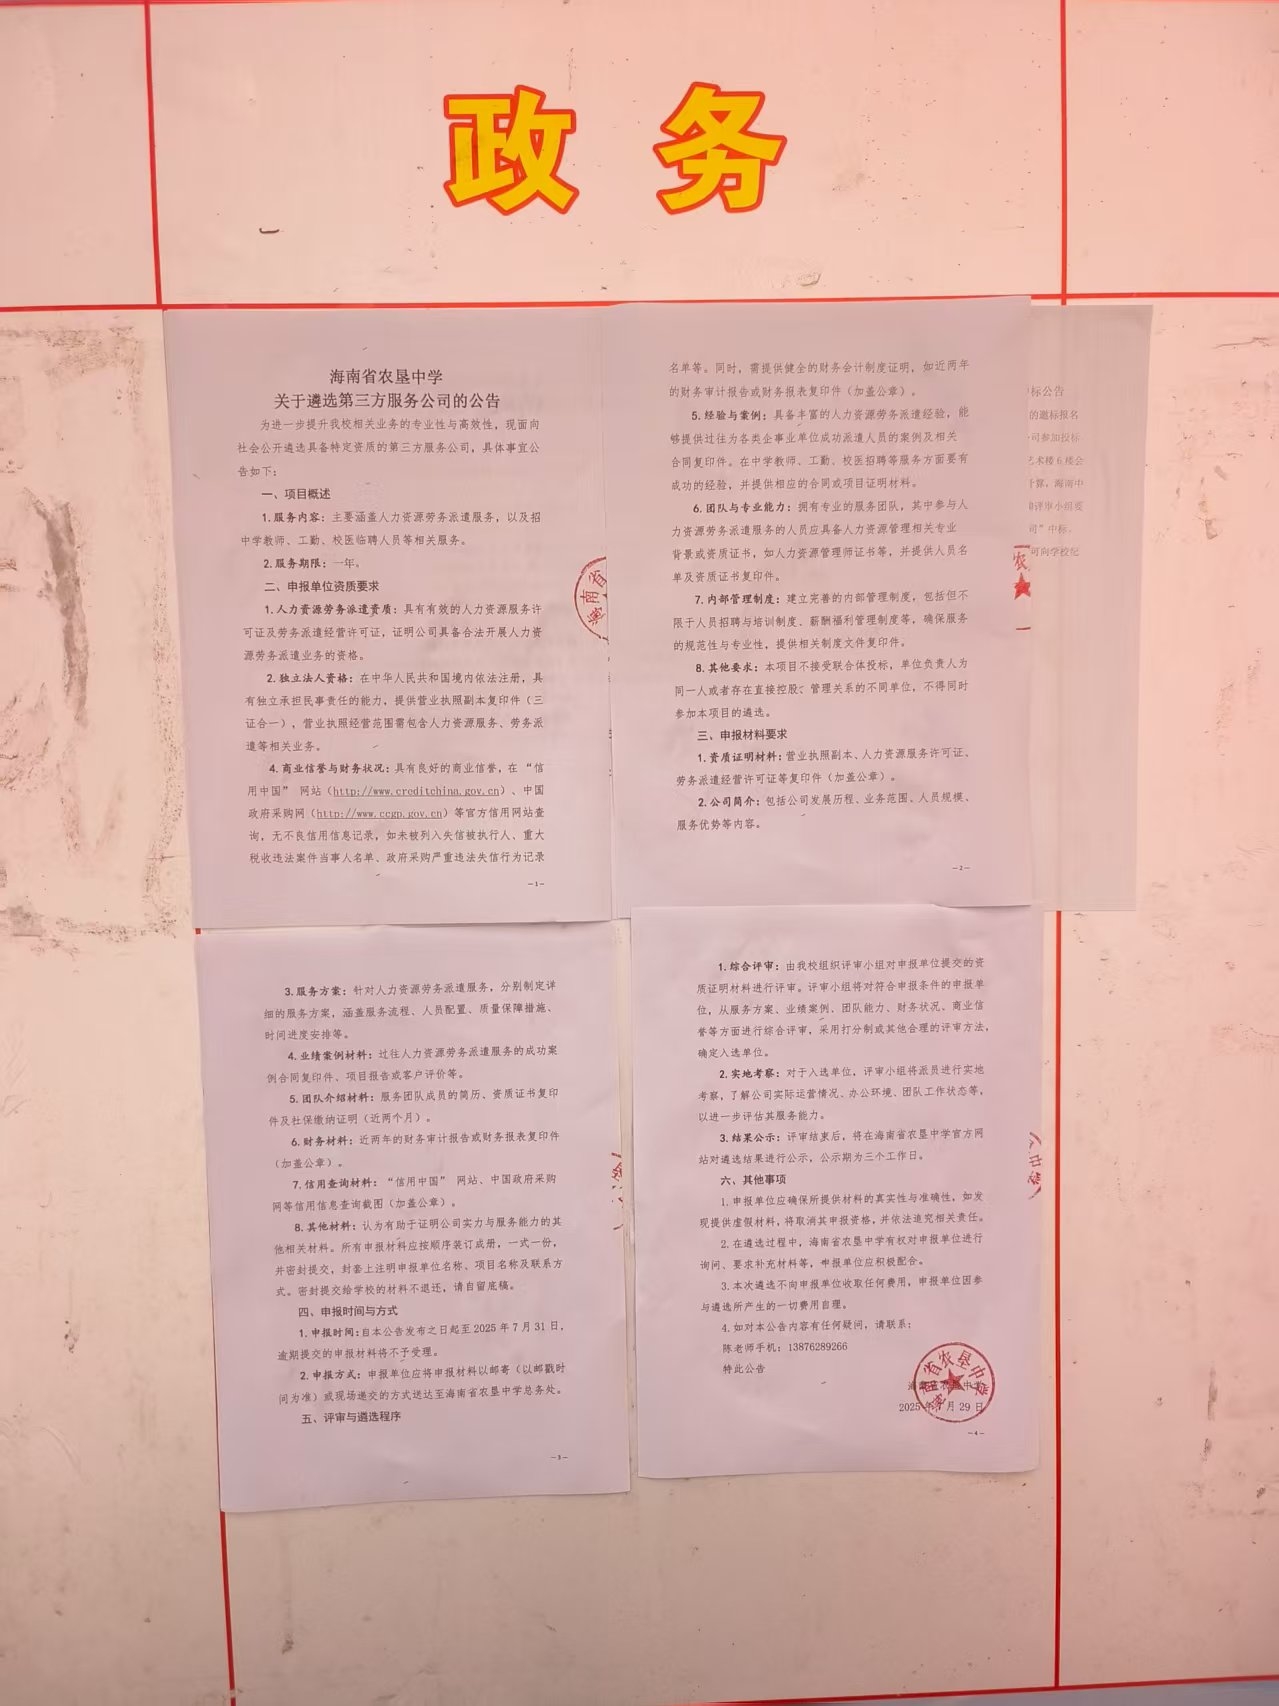 政务
海南省农垦中学
关于遴选第三方服务公司的公告
为进一步提升我校相关业务的专业性与高效性，现面向
社会公开遴选具备特定资质的第三方服务公司，具体事宜公
告如下：
一、项目概述
1.服务内容：主要涵盖人力资源劳务派遣服务，以及招
中学教师、工勤、校医临聘人员等相关服务。
2.服务期限：一年。
二、申报单位资质要求
1.人力资源劳务派遣资质：具有有效的人力资源服务许
可证及劳务派遣经营许可证，证明公司具备合法开展人力资
源劳务派遣业务的资格。
2.独立法人资格：在中华人民共和国境内依法注册，具
有独立承担民事责任的能力，提供营业执照副本复印件（三
证合一），营业执照经营范围需包含人力资源服务、劳务派
遣等相关业务。
4.商业信誉与财务状况：具有良好的商业信誉，在“信
用中国” 网站（http://www.creditchina.gov.cn）、中国
政府采购网（http://www.ccgp.gov.cn）等官方信用网站查
询，无不良信用信息记录，如未被列入失信被执行人、重大
税收违法案件当事人名单、政府采购严重违法失信行为记录
－1－
海南省
名单等。同时，需提供健全的财务会计制度证明，如近两年
的财务审计报告或财务报表复印件（加盖公章）。
5.经验与案例：具备丰富的人力资源劳务派遣经验，能
够提供过往为各类企事业单位成功派遣人员的案例及相关
合同复印件。在中学教师、工勤、校医招聘等服务方面要有
成功的经验，并提供相应的合同或项目证明材料。
6.团队与专业能力：拥有专业的服务团队，其中参与人
力资源劳务派遣服务的人员应具备人力资源管理相关专业
背景或资质证书，如人力资源管理师证书等，并提供人员名
单及资质证书复印件。
7.内部管理制度：建立完善的内部管理制度，包括但不
限于人员招聘与培训制度、薪酬福利管理制度等，确保服务
的规范性与专业性，提供相关制度文件复印件。
8.其他要求：本项目不接受联合体投标，单位负责人为
同一人或者存在直接控股、管理关系的不同单位，不得同时
参加本项目的遴选。
三、申报材料要求
1.资质证明材料：营业执照副本、人力资源服务许可证、
劳务派遣经营许可证等复印件（加盖公章）。
2.公司简介：包括公司发展历程、业务范围、人员规模、
服务优势等内容。
－2－
农
标公告
的邀标报名
司参加投标
艺术楼6楼会
算，海南中
评审小组要
司”中标。
可向学校纪
3.服务方案：针对人力资源劳务派遣服务，分别制定详
细的服务方案，涵盖服务流程、人员配置、质量保障措施、
时间进度安排等。
4.业绩案例材料：过往人力资源劳务派遣服务的成功案
例合同复印件、项目报告或客户评价等。
5.团队介绍材料：服务团队成员的简历、资质证书复印
件及社保缴纳证明（近两个月）。
6.财务材料：近两年的财务审计报告或财务报表复印件
（加盖公章）。
7.信用查询材料：“信用中国” 网站、中国政府采购
网等信用信息查询截图（加盖公章）。
8.其他材料：认为有助于证明公司实力与服务能力的其
他相关材料。所有申报材料应按顺序装订成册，一式一份，
并密封提交，封套上注明申报单位名称、项目名称及联系方
式。密封提交给学校的材料不退还，请自留底稿。
四、申报时间与方式
1.申报时间：自本公告发布之日起至2025年7月31日，
逾期提交的申报材料将不予受理。
2.申报方式：申报单位应将申报材料以邮寄（以邮戳时
间为准）或现场递交的方式送达至海南省农垦中学总务处。
五、评审与遴选程序
－3－
1.综合评审：由我校组织评审小组对申报单位提交的资
质证明材料进行评审。评审小组将对符合申报条件的申报单
位，从服务方案、业绩案例、团队能力、财务状况、商业信
誉等方面进行综合评审，采用打分制或其他合理的评审方法，
确定入选单位。
2.实地考察：对于入选单位，评审小组将派员进行实地
考察，了解公司实际运营情况、办公环境、团队工作状态等，
以进一步评估其服务能力。
3.结果公示：评审结束后，将在海南省农垦中学官方网
站对遴选结果进行公示，公示期为三个工作日。
六、其他事项
1.申报单位应确保所提供材料的真实性与准确性，如发
现提供虚假材料，将取消其申报资格，并依法追究相关责任。
2.在遴选过程中，海南省农垦中学有权对申报单位进行
询问、要求补充材料等，申报单位应积极配合。
3.本次遴选不向申报单位收取任何费用，申报单位因参
与遴选所产生的一切费用自理。
4.如对本公告内容有任何疑问，请联系：
陈老师手机：13876289266
特此公告
海南省农垦中学
2025年7月29日
海南省农垦中学
－4－